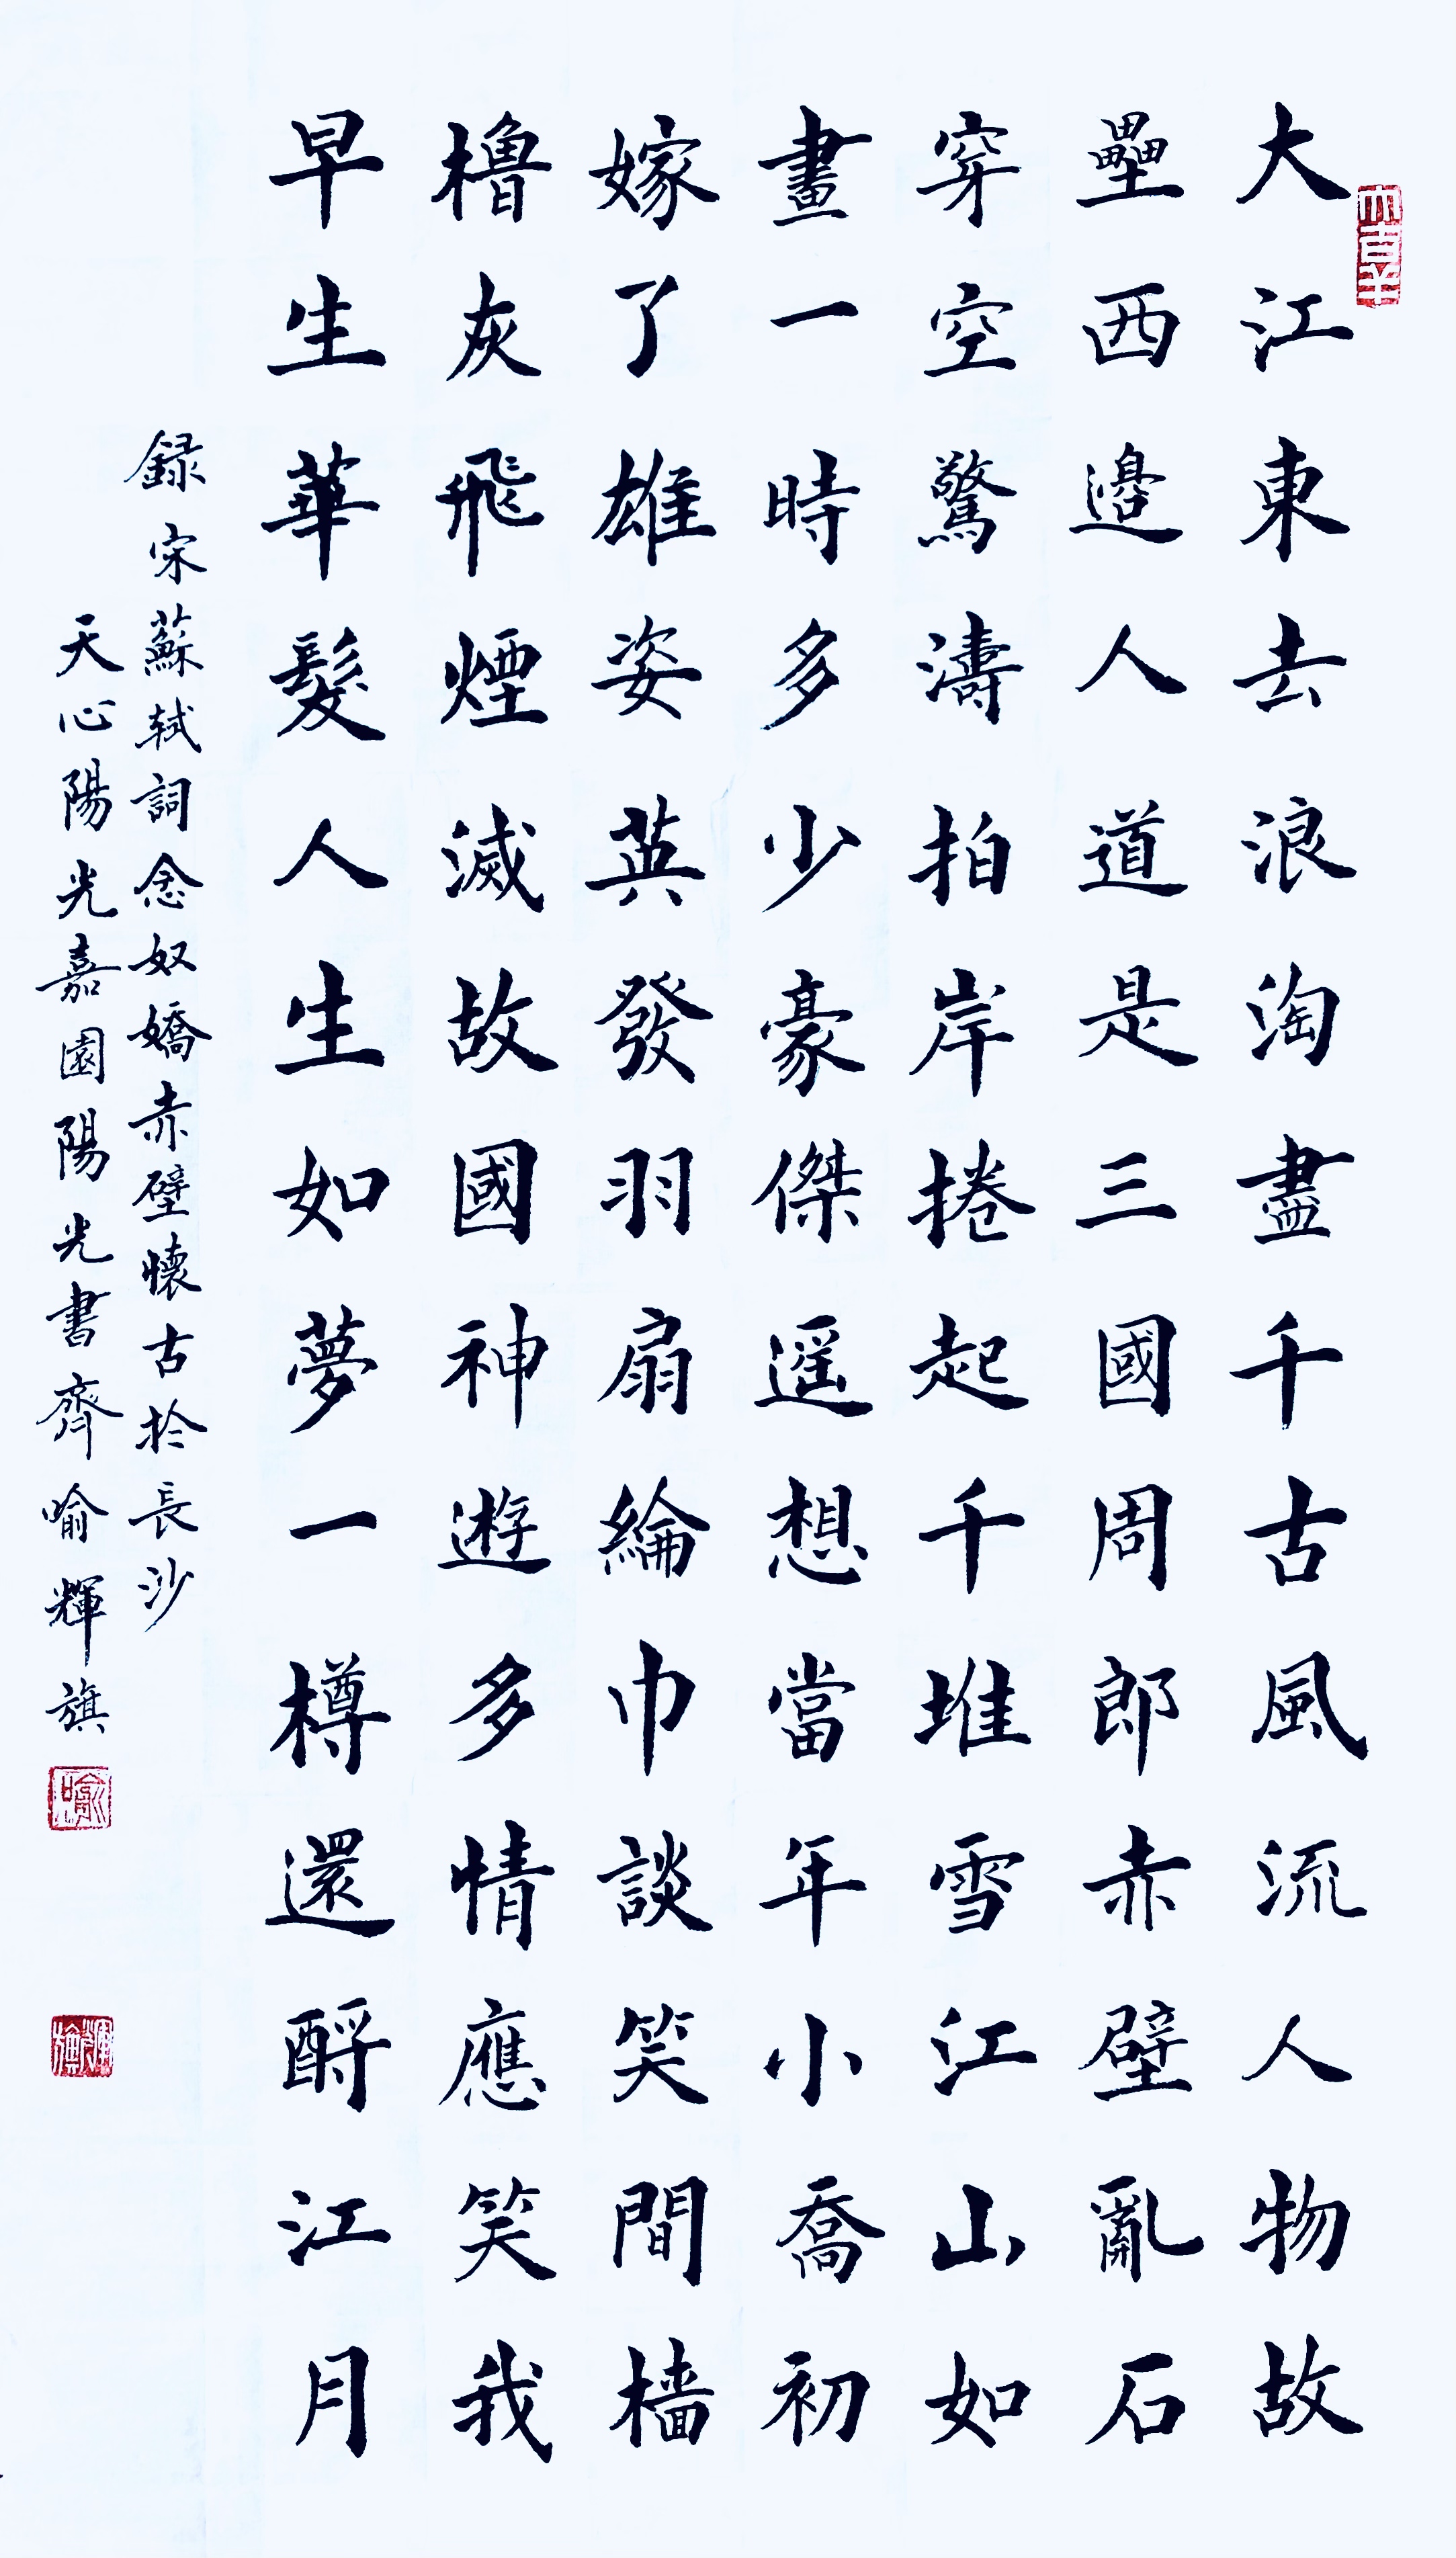 大江東去浪淘盡千古風流人物故
壘西邊人道是三國周郎赤壁亂石
穿空驚濤拍岸捲起千堆雪江山如
畫一時多少豪傑遥想當年小喬初
嫁了雄姿英發羽扇綸巾談笑間檣
櫓灰飛煙滅故國神遊多情應笑我
早生華髮人生如夢一樽還酹江月
録宋蘇軾詞念奴嬌赤壁懷古於長沙
天心陽光嘉園陽光書齋喻輝旗
喻
輝旗